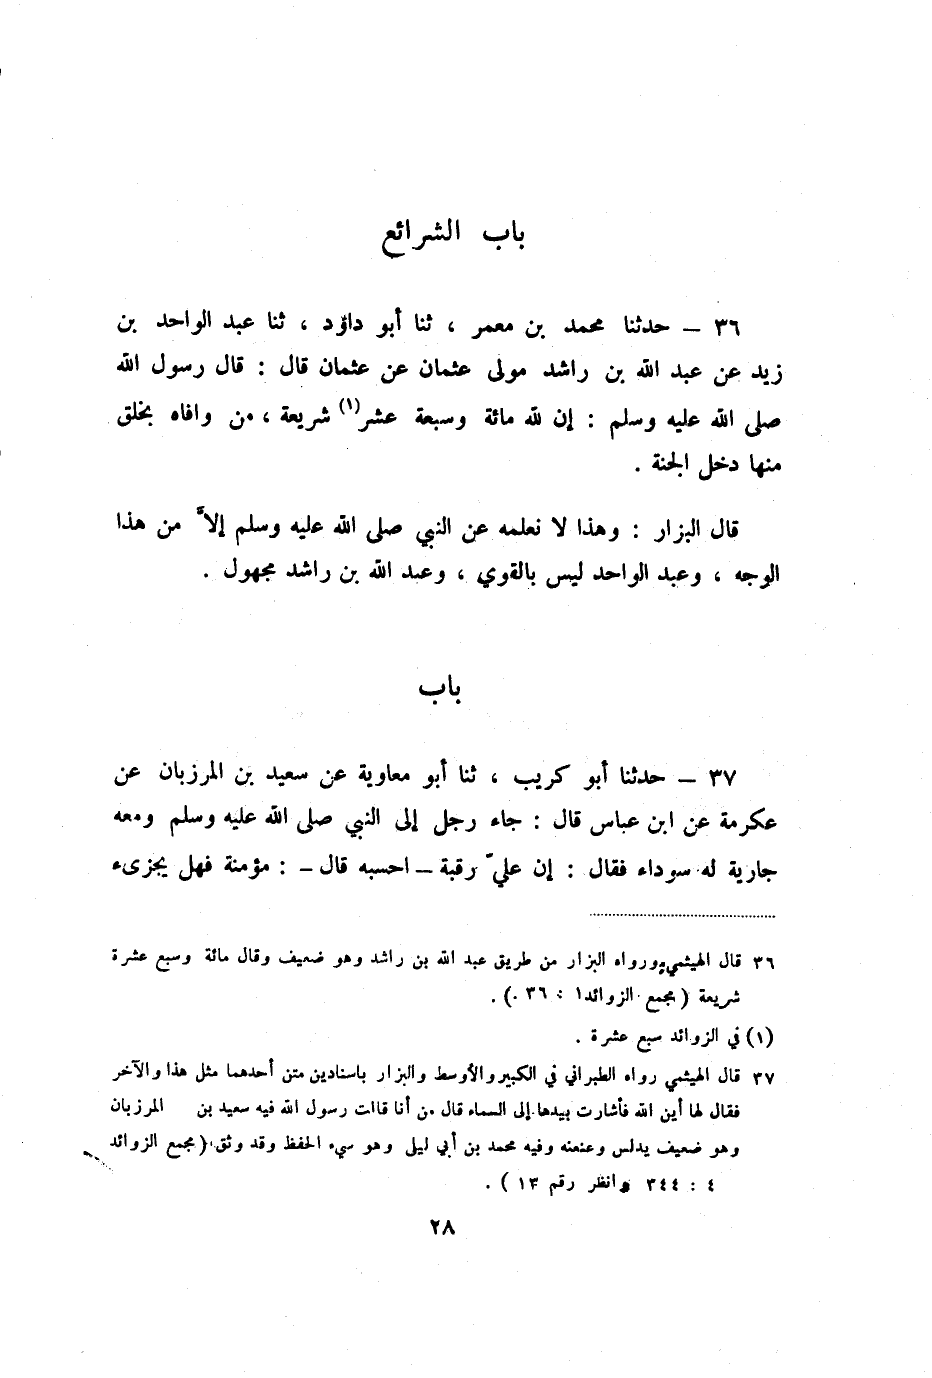 باب الشرائع
٣٦ – حدثنا محمد بن معمر ، ثنا أبو داؤد ، ثنا عبد الواحد بن
زيد عن عبد الله بن راشد مولى عثمان عن عثمان قال : قال رسول الله
صلى الله عليه وسلم : إن لله مائة وسبعة عشر(١) شريعة ، من وافاه بخلق
منها دخل الجنة .
قال البزار : وهذا لا نعلمه عن النبي صلى الله عليه وسلم إلاّ من هذا
الوجه ، وعبد الواحد ليس بالقوي ، وعبد الله بن راشد مجهول .
باب
٣٧ – حدثنا أبو كريب ، ثنا أبو معاوية عن سعيد بن المرزبان عن
عكرمة عن ابن عباس قال : جاء رجل إلى النبي صلى الله عليه وسلم ومعه
جارية له سوداء فقال : إن عليّ رقبة – احسبه قال – : مؤمنة فهل يجزىء
٣٦ قال الهيثمي ورواه البزار من طريق عبد الله بن راشد وهو ضعيف وقال مائة وسبع عشرة
شريعة ( مجمع الزوائد ١ : ٣٦ ) .
(١) في الزوائد سبع عشرة .
٣٧ قال الهيثمي رواه الطبراني في الكبير والأوسط والبزار باسنادين متن أحدهما مثل هذا والآخر
فقال لها أين الله فأشارت بيدها إلى السماء قال من أنا قالت رسول الله فيه سعيد بن المرزبان
وهو ضعيف يدلس وعنعنه وفيه محمد بن أبي ليلى وهو سيء الحفظ وقد وثق ( مجمع الزوائد
٤ : ٣٤٤ وانظر رقم ١٣ ) .
٢٨